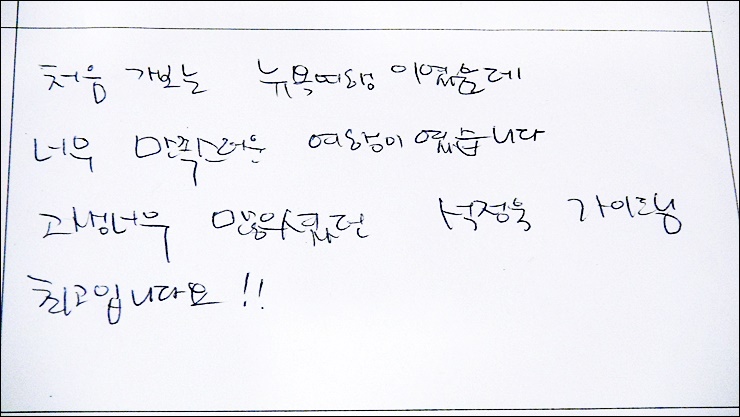 처음 가보는 뉴욕여행 이였는데
너무 만족스러운 여행이 였습니다
고생너무 많으셨던 석정욱 가이드님
최고입니다요!!